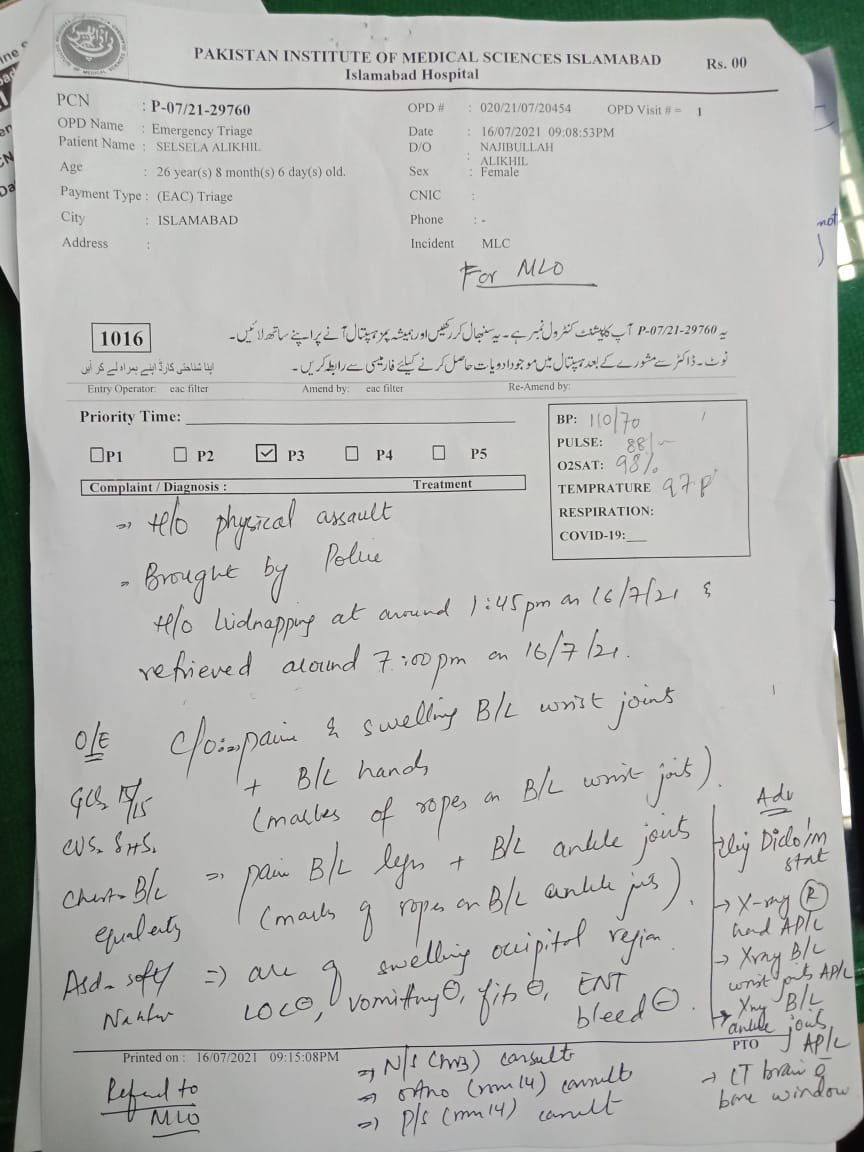 PAKISTAN INSTITUTE OF MEDICAL SCIENCES ISLAMABAD Rs. 00
Islamabad Hospital
PCN : P-07/21-29760 OPD # : 020/21/07/20454 OPD Visit # = 1
OPD Name : Emergency Triage Date : 16/07/2021 09:08:53PM
Patient Name : SELSELA ALIKHIL D/O : NAJIBULLAH ALIKHIL
Age : 26 year(s) 8 month(s) 6 day(s) old. Sex : Female
Payment Type : (EAC) Triage CNIC :
City : ISLAMABAD Phone : -
Address : Incident MLC
For MLO
1016
یہ P-07/21-29760 آپ کا پیشنٹ کنٹرول نمبر ہے۔ یہ سنبھال کر رکھیں اور ہمیشہ پمز ہسپتال آنے پر اپنے ساتھ لائیں۔
نوٹ۔ ڈاکٹر سے مشورے کے بعد ہسپتال میں موجود ادویات حاصل کرنے کیلئے فارمیسی سے رابطہ کریں۔
اپنا شناختی کارڈ اپنے ہمراہ لے کر آئیں
Entry Operator: eac filter Amend by: eac filter Re-Amend by:
Priority Time:
P1 P2 P3 P4 P5
Complaint / Diagnosis : Treatment
BP: 110/70
PULSE: 88/
O2SAT: 98%
TEMPRATURE 97 F
RESPIRATION:
COVID-19:
H/o physical assault
Brought by Police
H/o kidnapping at around 1:45pm on 16/7/21 &
retrieved around 7:00pm on 16/7/21.
O/E
GCS 15/15
CVS. S1+S2
Chest B/L
equal
Abd. soft
C/o: pain & swelling B/L wrist joints
+ B/L hands
(marks of ropes on B/L wrist joints).
=> pain B/L legs + B/L ankle joints
(marks of ropes on B/L ankle jts).
=> area of swelling occipital region.
LOC⊖, vomitting⊖, fits⊖, ENT
bleed ⊖.
Adv
Inj Diclo im
stat
→ X-ray (R)
hand AP/L
→ Xray B/L
wrist joints AP/L
→ Xray B/L
ankle joints
AP/L
PTO
→ CT brain
bone window
Printed on : 16/07/2021 09:15:08PM
Referred to
MLO
=> N/S consult
=> ortho (rm 14) consult
=> P/S (rm 14) consult
not